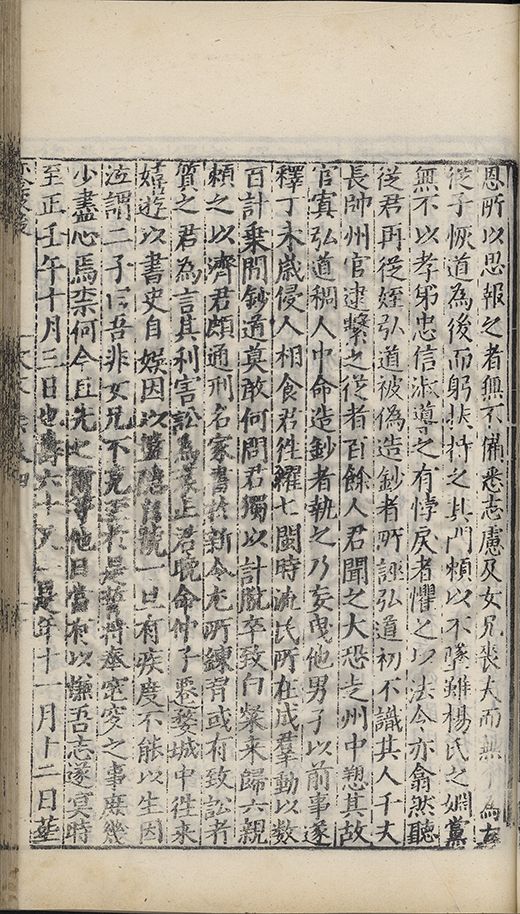 恩所以思報之者無不備悉志慮及女兄喪夫而無為立
從子恢道為後而躬扶持之其門頼以不墜雖楊氏之姻黨
無不以孝弟忠信淑導之有悖戾者懼之以法令亦翕然聽
從君再從姪弘道被偽造鈔者所誣弘道初不識其人千夫
長帥州官逮繫之從者百餘人君聞之大恐走州中愬其故
官寘弘道稠人中命造鈔者執之乃妄曳他男子以前事遂
釋丁未歲侵人相食君徃糴七閩時流氏所在成羣動以數
百計乗間鈔道莫敢何問君獨以計脫卒致白粲來歸六親
頼之以濟君頗通刑名家書於新令尤所鍊習或有致訟者
質之君為言其利害訟為衰止君晚命仲子婺城中徃來
嬉遊以書史自娛因以隱自號一旦有疾度不能以生因
泣謂二子曰吾非女兄不克至於是將奉窀穸之事庶幾
少盡心焉柰何今且先之爾等他日當有以慊吾志遂寞時
至正壬午十月三日也壽六十又一是年十一月十二日葬